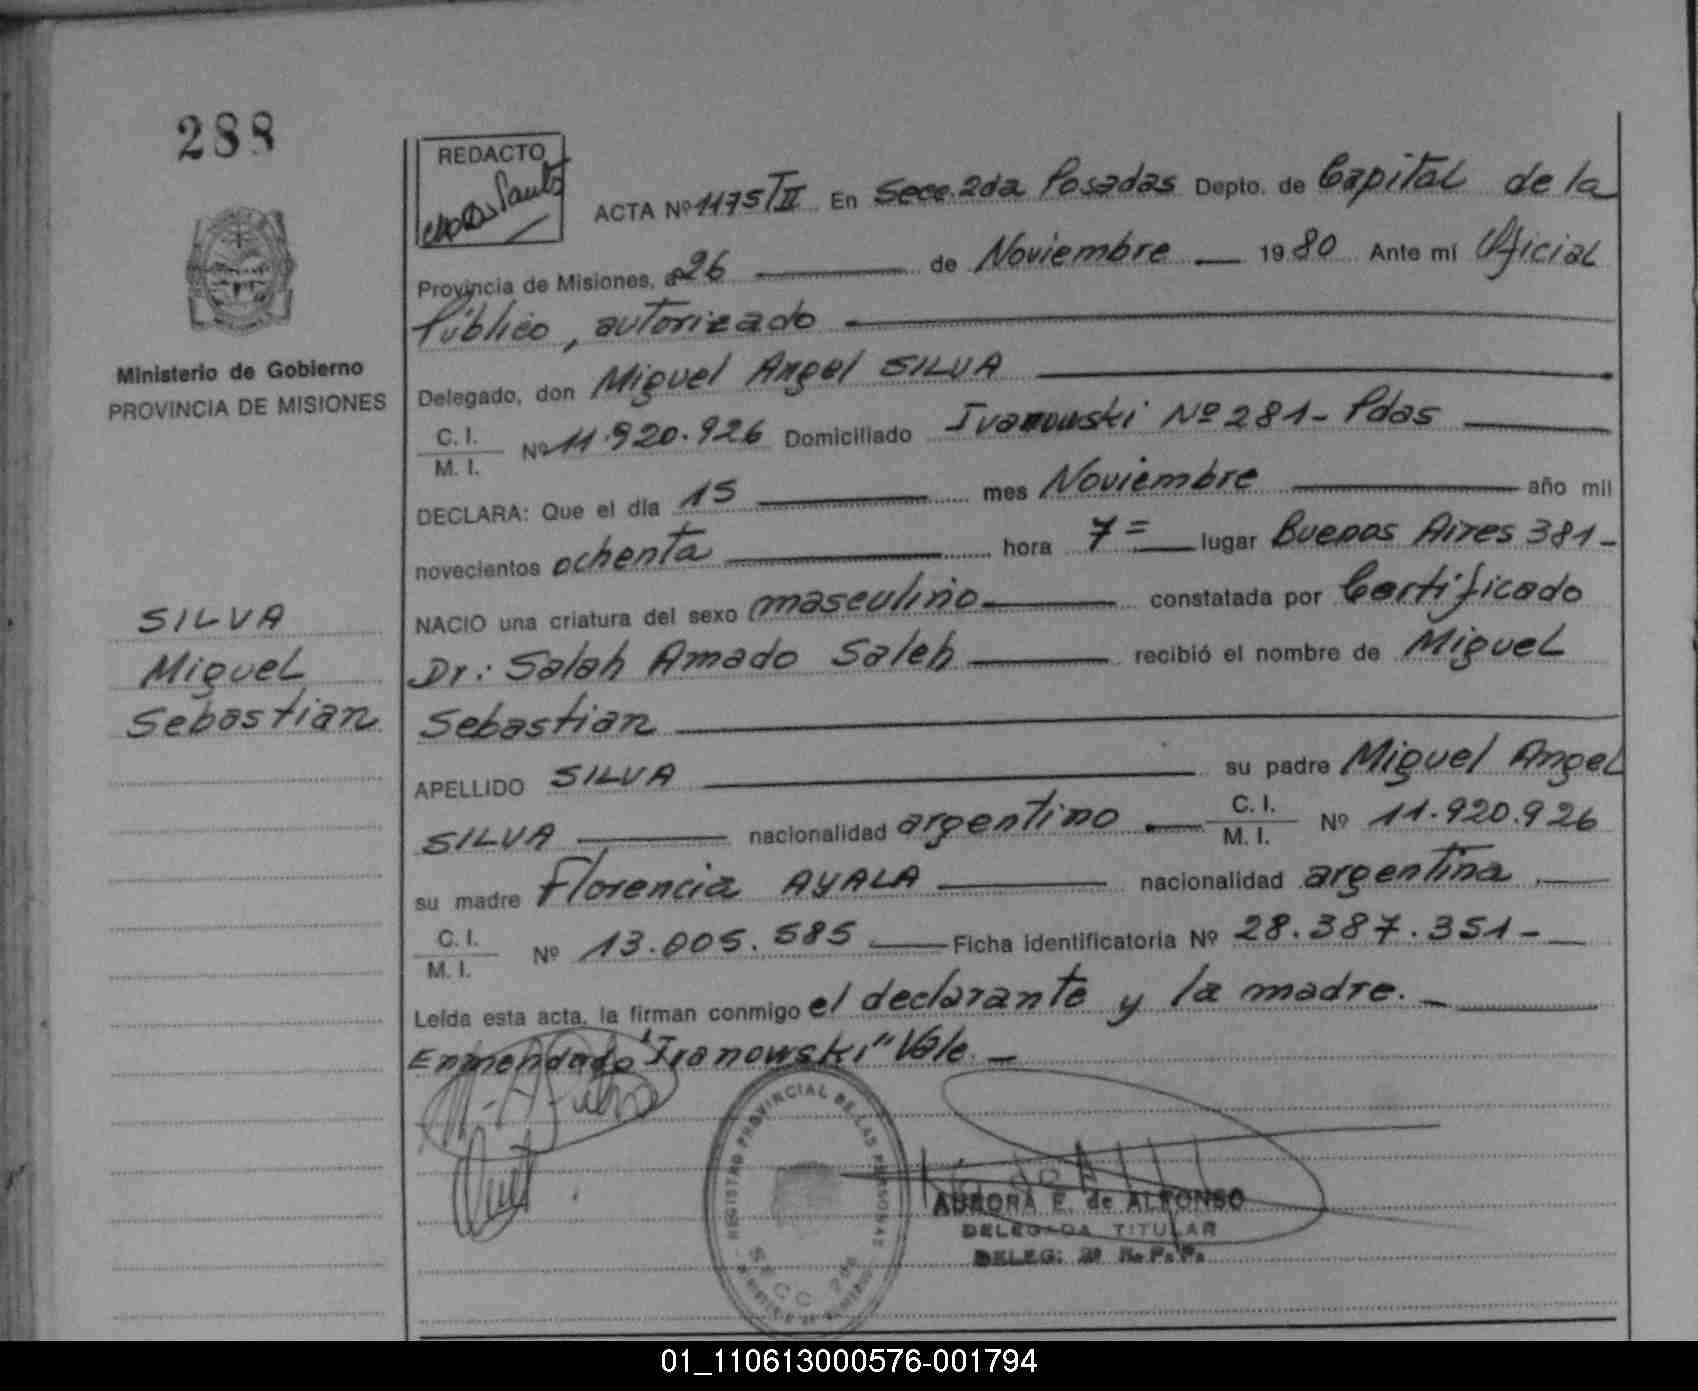 288
REDACTO
ACTA Nº 1175/II En Secc. 2da Posadas Depto. de Capital de la
Provincia de Misiones, a 26 de Noviembre 1980 Ante mi Oficial
Público, autorizado
Ministerio de Gobierno
PROVINCIA DE MISIONES
Delegado, don Miguel Angel SILVA
C. I.
M. I. Nº 11.920.926 Domiciliado Ivanowski Nº 281- Pdas
DECLARA: Que el día 15 mes Noviembre año mil
novecientos ochenta hora 7= lugar Buenos Aires 381-
NACIO una criatura del sexo masculino constatada por Certificado
Dr: Salah Amado Saleh recibió el nombre de Miguel
Sebastian
SILVA
Miguel
Sebastian
APELLIDO SILVA su padre Miguel Angel
SILVA nacionalidad argentino C. I. M. I. Nº 11.920.926
su madre Florencia AYALA nacionalidad argentina
C. I.
M. I. Nº 13.005.585 Ficha identificatoria Nº 28.387.351-
Leída esta acta, la firman conmigo el declarante y la madre.
Enmendado "Ivanowski" Vale.
REGISTRO PROVINCIAL DE LAS PERSONAS
SECC. 2da
AURORA E. de ALFONSO
DELEGADA TITULAR
DELEG. 2ª R. P. P.
01_110613000576-001794